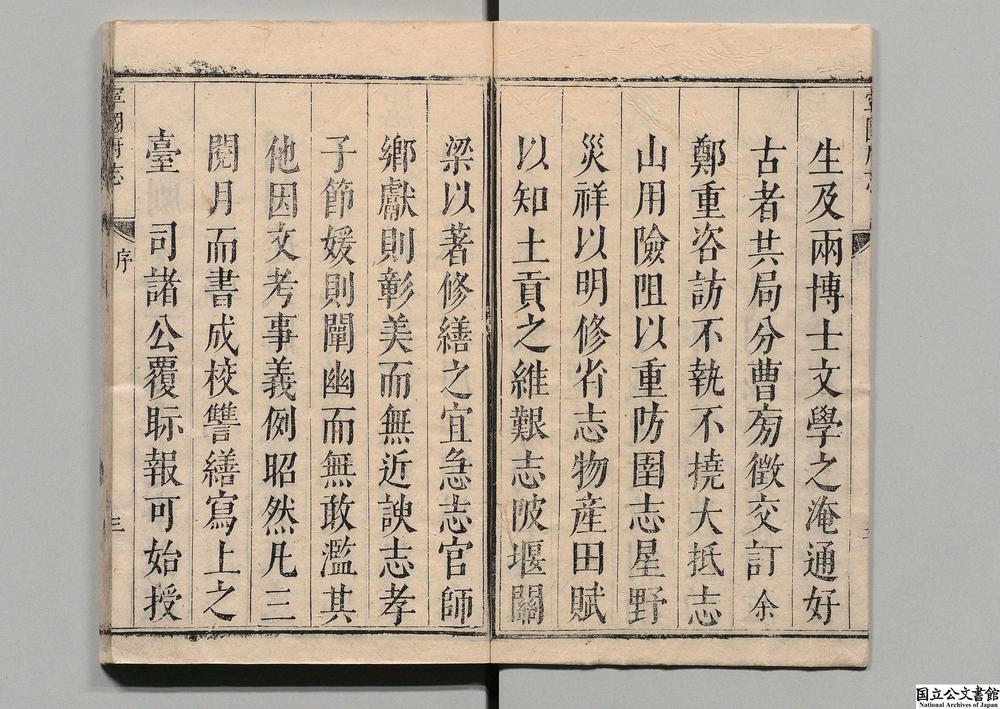 生及兩博士文學之淹通好
古者共局分曹旁徵交訂余
鄭重咨訪不執不撓大抵志
山用險阻以重防圉志星野
災祥以明修省志物產田賦
以知土貢之維艱志陂堰關
梁以著修繕之宜急志官師
鄉獻則彰美而無近諛志孝
子節媛則闡幽而無敢濫其
他因文考事義例昭然凡三
閱月而書成校讐繕寫上之
臺 司諸公覆眎報可始授
寧國府志
序
三
国立公文書館
National Archives of Japan